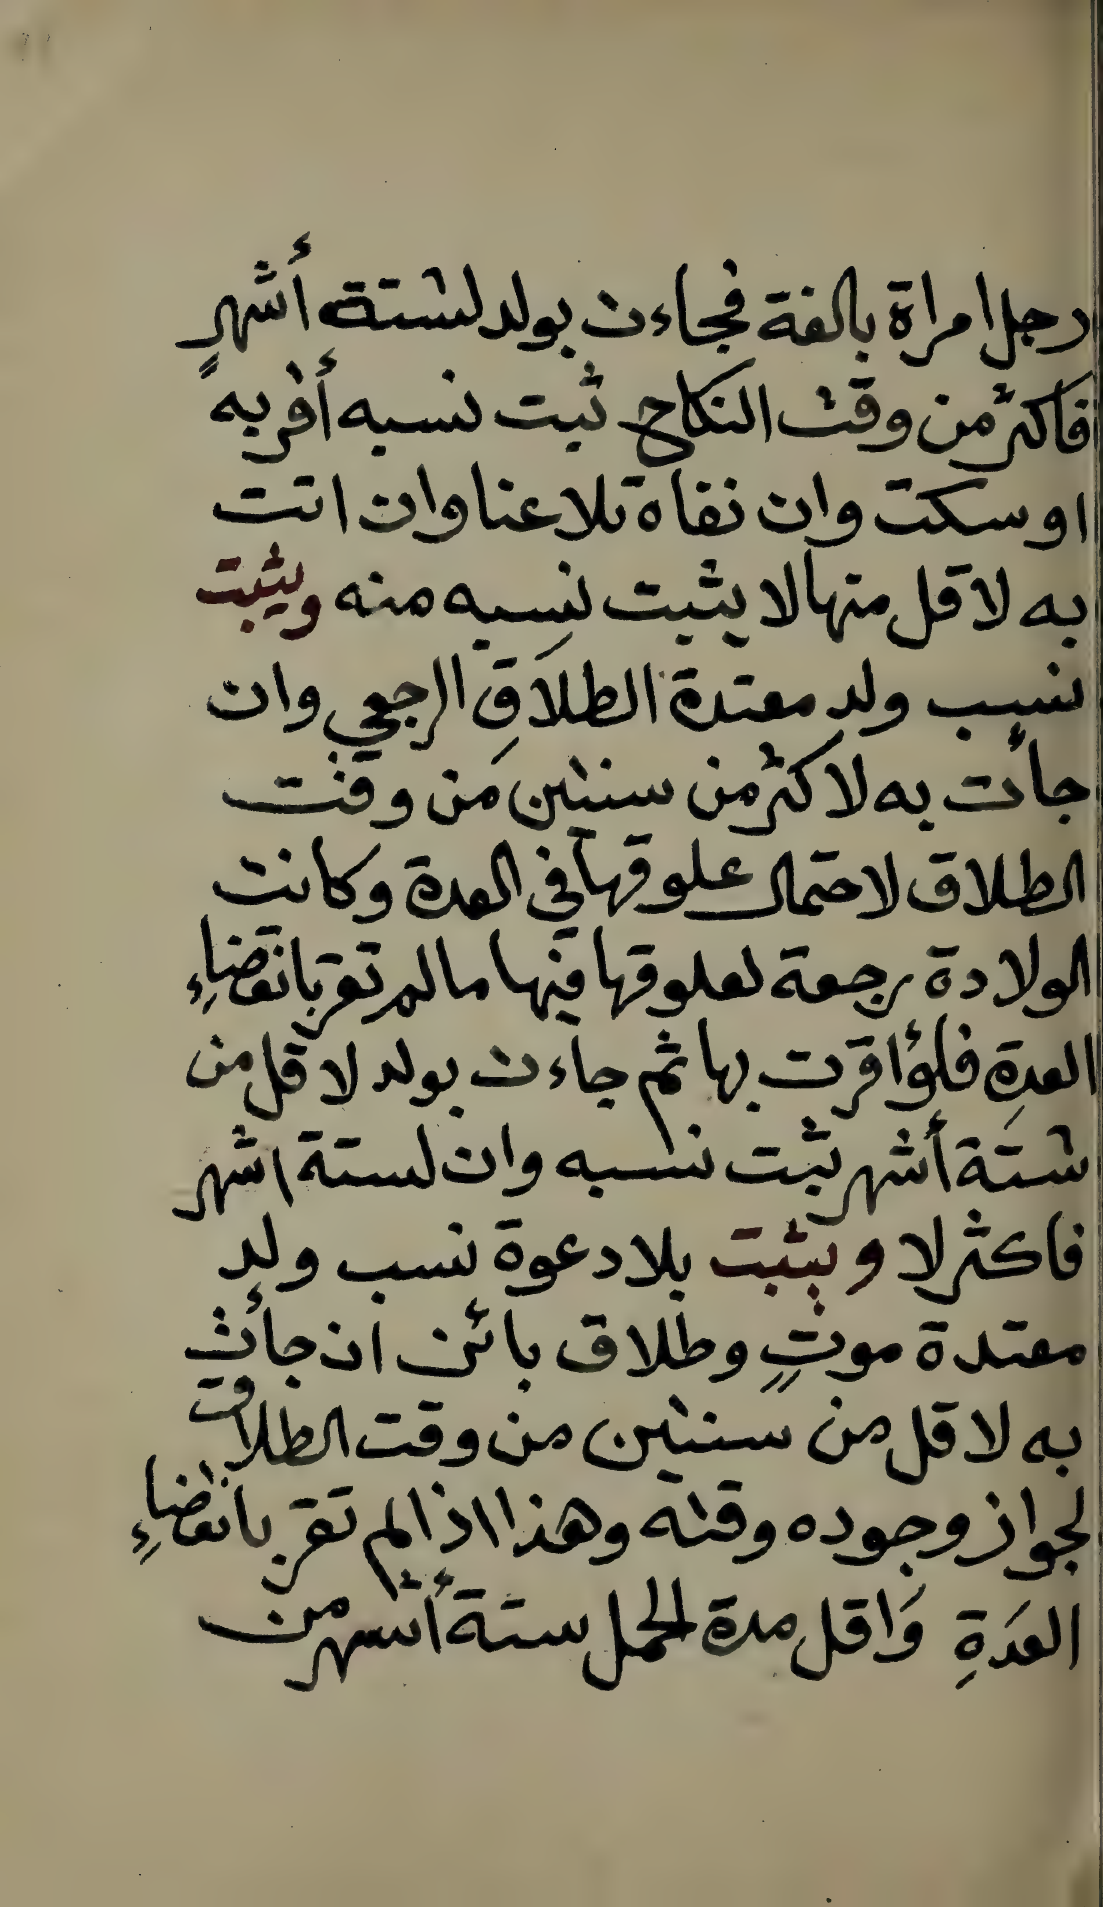 رجل امراة بالغة فجاءت بولد لستة أشهرٍ
فاكثر من وقت النكاح ثبت نسبه أقر به
او سكت وان نفاه تلاعنا وان اتت
به لاقل منها لا يثبت نسبه منه ويثبت
نسب ولد معتدة الطلاقِ الرجعي وان
جأت به لاكثر من سنتين من وقت
الطلاق لاحتمال علوقها في العدة وكانت
الولادة رجعة لعلوقها فيها ما لم تقر بانقضاءِ
العدةِ فلو اقرت بها ثم جاءت بولد لاقل من
ستة أشهر ثبت نسبه وان لستة اشهر
فاكثر لا ويثبت بلا دعوة نسب ولد
معتدة موتٍ وطلاق بائن ان جأت
به لاقل من سنتين من وقت الطلاق
لجواز وجوده وقته وهذا اذا لم تقر بانقضاءِ
العدَةِ وَاقل مدة الحمل ستة أشهر من